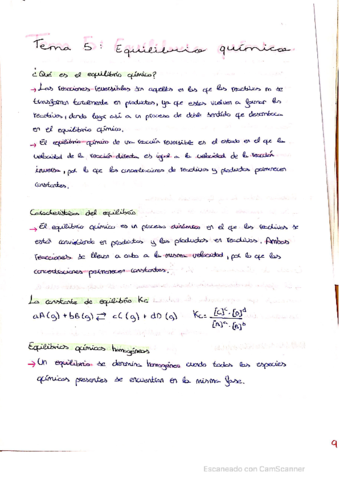 Tema 5: Equilibrio químico
¿Qué es el equilibrio químico?
→ Las reacciones reversibles son aquellas en las que los reactivos no se
transforman totalmente en productos, ya que estos vuelven a formar los
reactivos, dando lugar así a un proceso de doble sentido que desemboca
en el equilibrio químico.
→ El equilibrio químico de una reacción reversible es el estado en el que la
velocidad de la reacción directa es igual a la velocidad de la reacción
inversa, por lo que las concentraciones de reactivos y productos permanecen
constantes.
Características del equilibrio
→ El equilibrio químico es un proceso dinámico en el que los reactivos se
están convirtiendo en productos y los productos en reactivos. Ambas
reacciones se llevan a cabo a la misma velocidad, por lo que las
concentraciones permanecen constantes.
La constante de equilibrio Kc
aA(g) + bB(g) ⇄ cC(g) + dD(g) Kc = [C]^c · [D]^d / [A]^a · [B]^b
Equilibrios químicos homogéneos
→ Un equilibrio se denomina homogéneo cuando todas las especies
químicas presentes se encuentran en la misma fase.
9
Escaneado con CamScanner